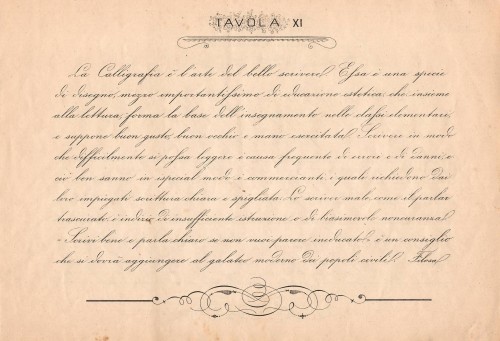 TAVOLA XI
La Calligrafia è l'arte del bello scrivere. Essa è una specie
di disegno, mezzo importantissimo di educazione estetica, che insieme
alla lettura, forma la base dell'insegnamento nelle classi elementari,
e suppone buon gusto, buon occhio e mano esercitata. Scrivere in modo
che difficilmente si possa leggere è causa frequente di errori e di danni, e
ciò ben sanno in special modo i commercianti, i quali richiedono dai
loro impiegati scrittura chiara e spigliata. Lo scriver male, come il parlar
trascurato, è indizio di insufficiente istruzione o di biasimevole noncuranza.
Scrivi bene e parla chiaro se non vuoi parere ineducato, è un consiglio
che si dovrà aggiungere al galateo moderno dei popoli civili.